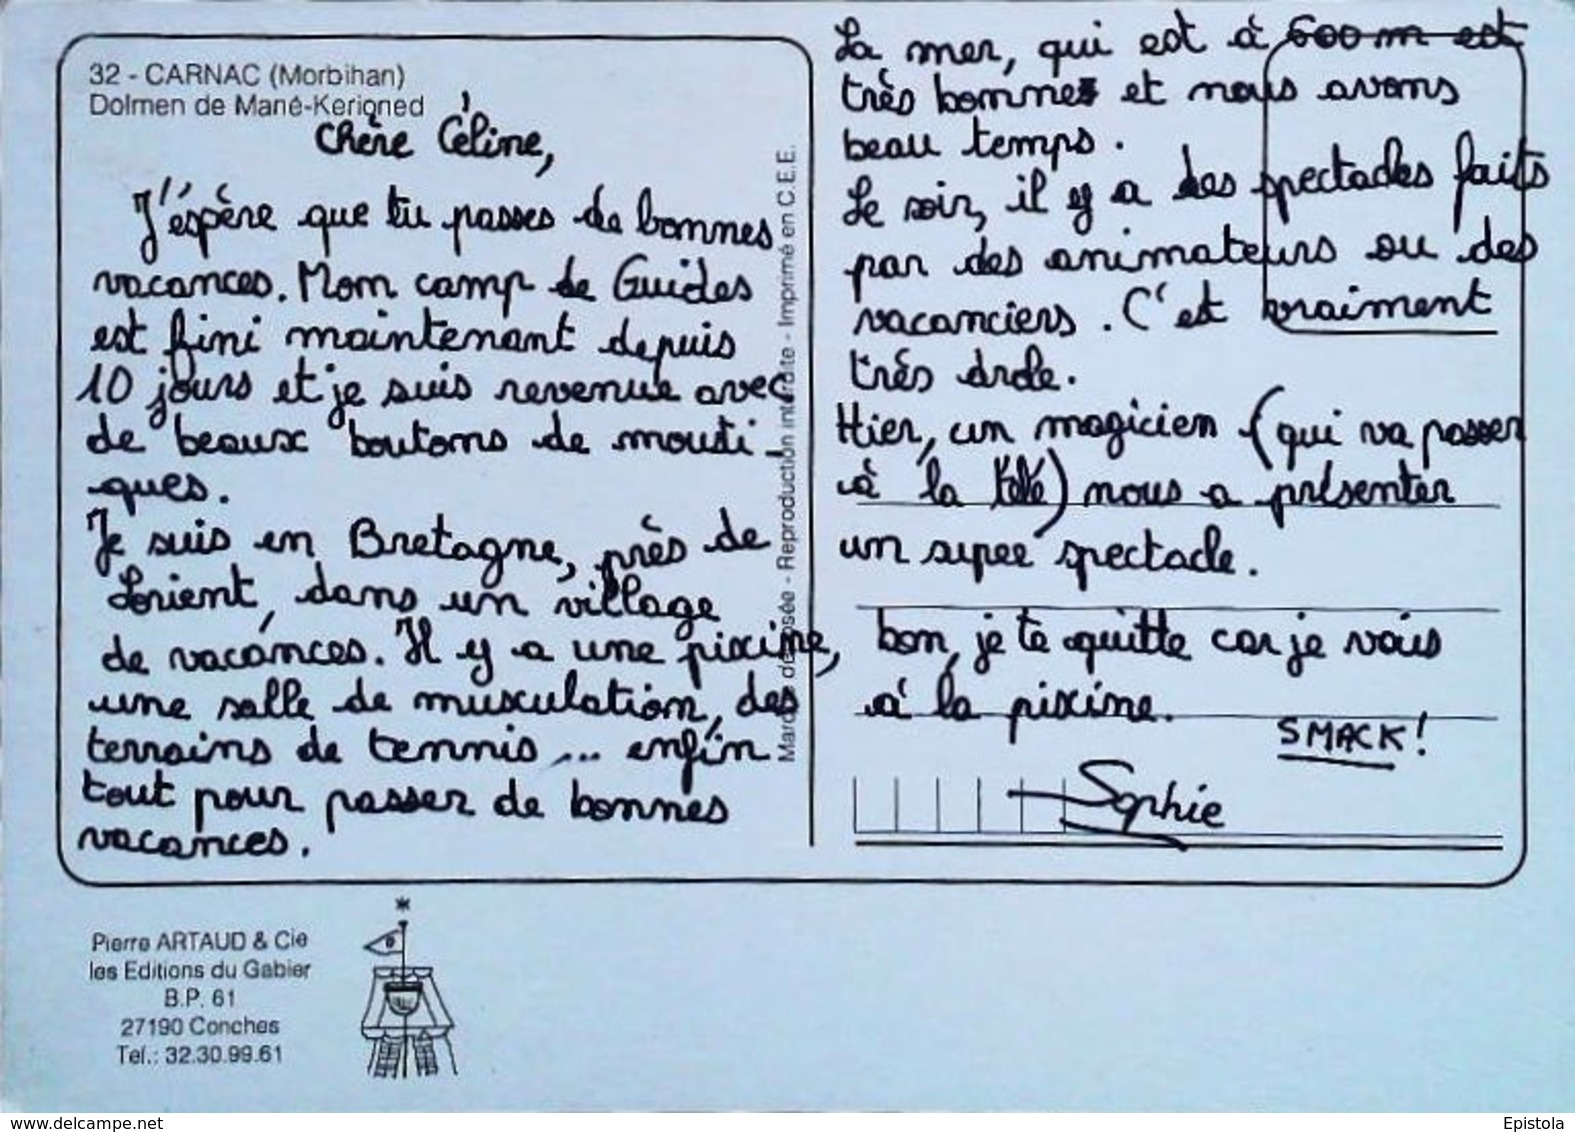 32 - CARNAC (Morbihan)
Dolmen de Mané-Kerioned
Chère Céline,
J'éspère que tu passes de bonnes
vacances. Mon camp de Guides
est fini maintenant depuis
10 jours et je suis revenue avec
de beaux boutons de mousti-
ques.
Je suis en Bretagne, près de
Lorient, dans un village
de vacances. Il y a une piscine,
une salle de musculation, des
terrains de tennis ... enfin
tout pour passer de bonnes
vacances.
La mer, qui est à 600 m est
très bonne et nous avons
beau temps.
Le soir, il y a des spectacles faits
par des animateurs ou des
vacanciers. C'est vraiment
très drole.
Hier, un magicien (qui va passer
à la télé) nous a présenter
un super spectacle.
bon, je te quitte car je vais
à la piscine.
SMACK!
Sophie
Marque déposée - Reproduction interdite - Imprimé en C.E.E.
Pierre ARTAUD & Cie
les Editions du Gabier
B.P. 61
27190 Conches
Tel.: 32.30.99.61
www.delcampe.net
Epistola